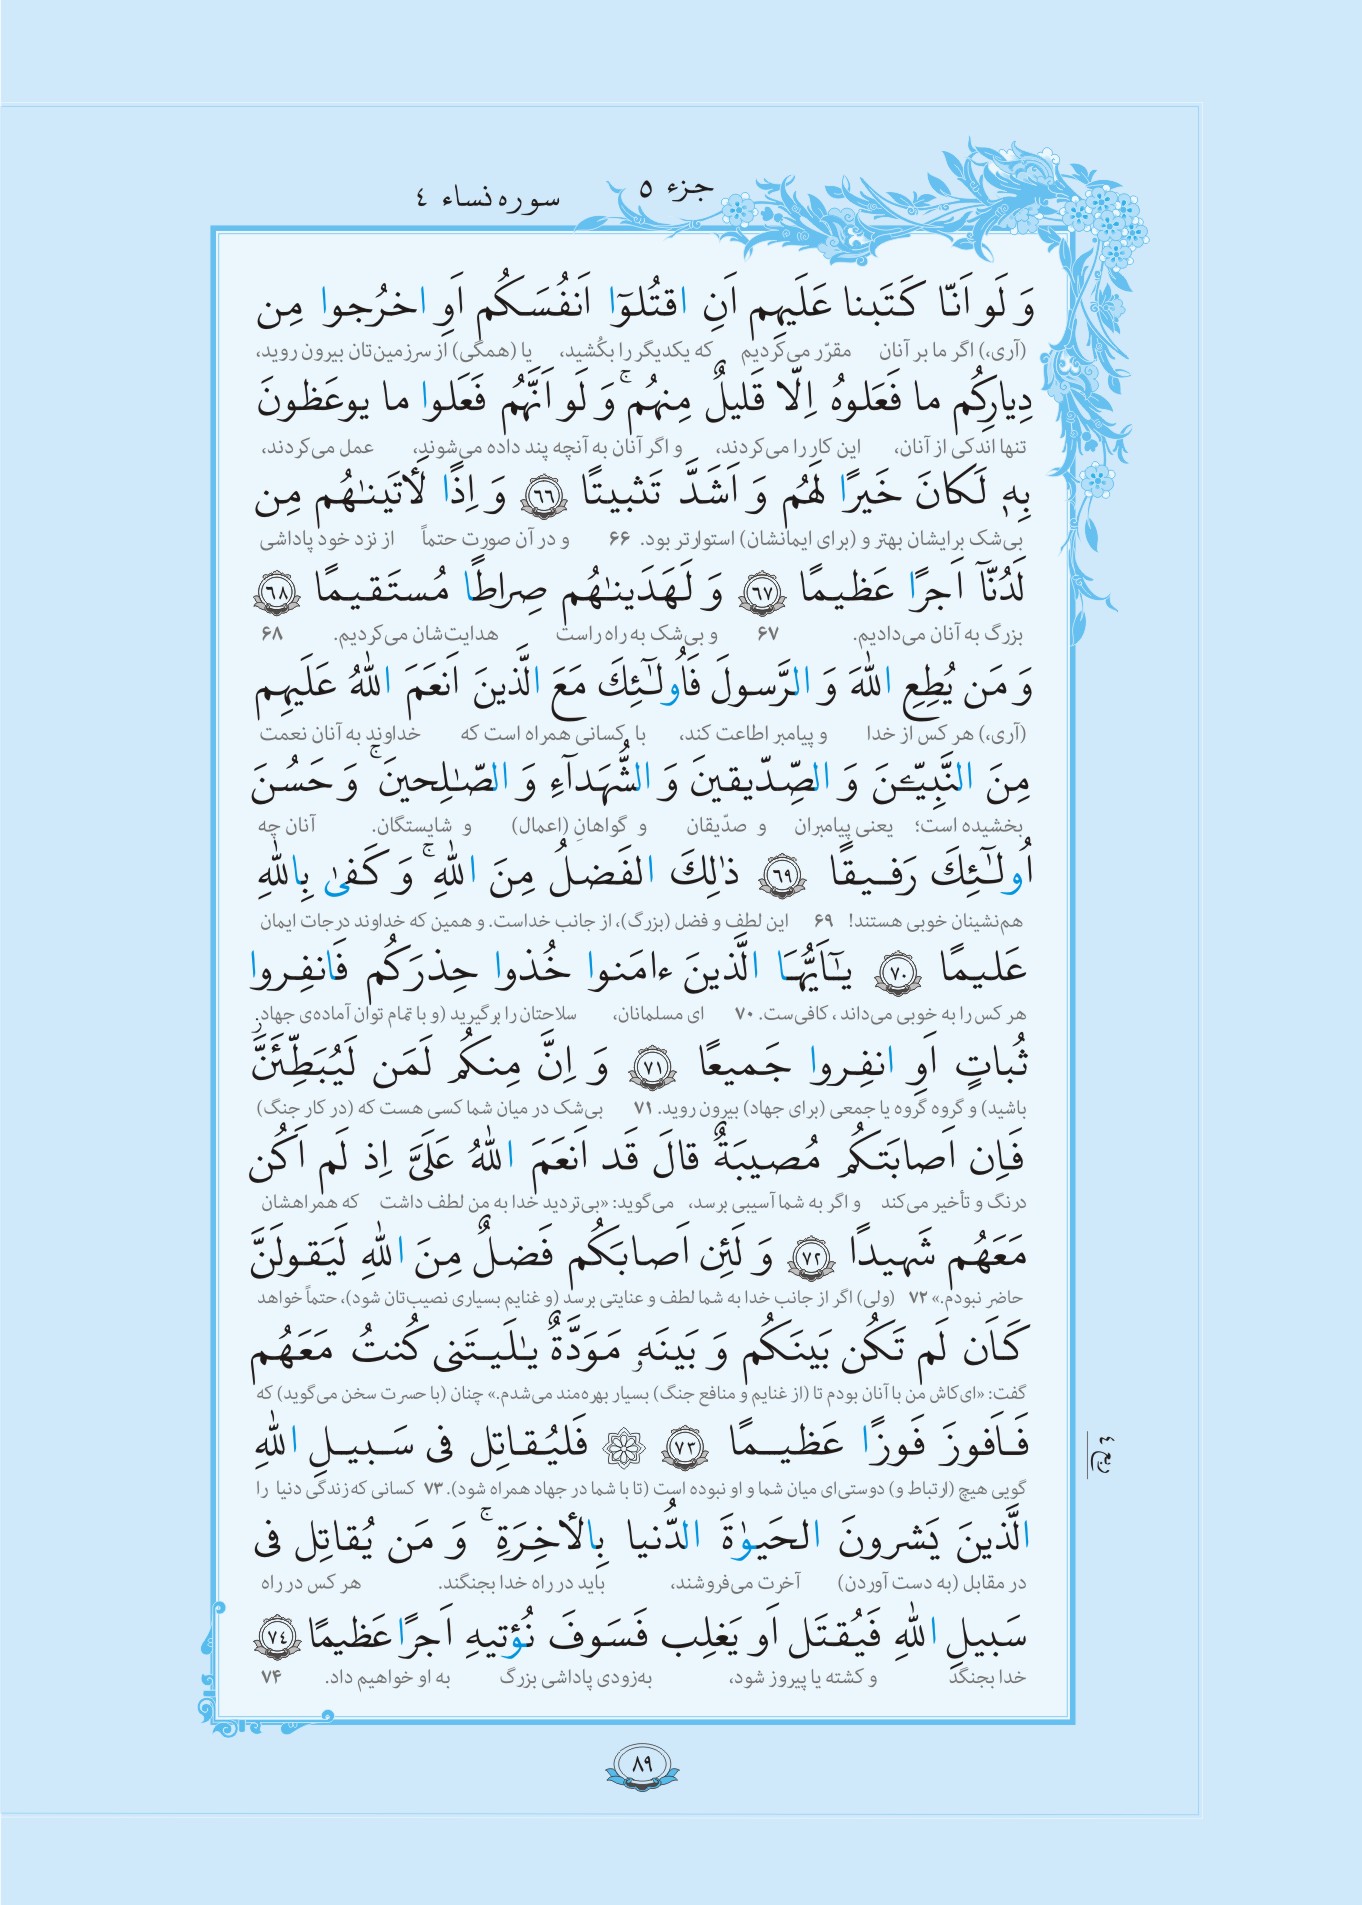 جزء ٥
سوره نساء ٤
وَ لَو اَنّا كَتَبنا عَلَيهِم اَنِ اقتُلوٓا اَنفُسَكُم اَوِ اخرُجوا مِن
(آری،) اگر ما بر آنان مقرّر می‌کردیم که یکدیگر را بکُشید، یا (همگی) از سرزمین‌تان بیرون روید،
دِيارِكُم ما فَعَلوهُ اِلّا قَليلٌ مِنهُم ۚ وَ لَو اَنَّهُم فَعَلوا ما يوعَظونَ
تنها اندکی از آنان، این کار را می‌کردند، و اگر آنان به آنچه پند داده می‌شوند، عمل می‌کردند،
بِهٖ لَكانَ خَيرًا لَهُم وَ اَشَدَّ تَثبيتًا ﴿٦٦﴾ وَ اِذًا لَأٰتَينٰهُم مِن
بی‌شک برایشان بهتر و (برای ایمانشان) استوارتر بود. ۶۶ و در آن صورت حتماً از نزد خود پاداشی
لَدُنّآ اَجرًا عَظيمًا ﴿٦٧﴾ وَ لَهَدَينٰهُم صِراطًا مُستَقيمًا ﴿٦٨﴾
بزرگ به آنان می‌دادیم. ۶۷ و بی‌شک به راه راست هدایت‌شان می‌کردیم. ۶۸
وَ مَن يُطِعِ اللّٰهَ وَ الرَّسولَ فَاُولٰٓئِكَ مَعَ الَّذينَ اَنعَمَ اللّٰهُ عَلَيهِم
(آری،) هر کس از خدا و پیامبر اطاعت کند، با کسانی همراه است که خداوند به آنان نعمت
مِنَ النَّبِيّـۧنَ وَ الصِّدّيقينَ وَ الشُّهَدآءِ وَ الصّٰلِحينَ ۚ وَ حَسُنَ
بخشیده است؛ یعنی پیامبران و صدّیقان و گواهانِ (اعمال) و شایستگان. آنان چه
اُولٰٓئِكَ رَفيقًا ﴿٦٩﴾ ذٰلِكَ الفَضلُ مِنَ اللّٰهِ ۚ وَ كَفىٰ بِاللّٰهِ
هم‌نشینان خوبی هستند! ۶۹ این لطف و فضل (بزرگ)، از جانب خداست. و همین که خداوند درجات ایمان
عَليمًا ﴿٧٠﴾ يٰٓاَيُّهَا الَّذينَ ءامَنوا خُذوا حِذرَكُم فَانفِروا
هر کس را به خوبی می‌داند، کافی‌ست. ۷۰ ای مسلمانان، سلاحتان را برگیرید (و با تمام توان آماده‌ی جهاد
ثُباتٍ اَوِ انفِروا جَميعًا ﴿٧١﴾ وَ اِنَّ مِنكُم لَمَن لَيُبَطِّئَنَّ
باشید) و گروه گروه یا جمعی (برای جهاد) بیرون روید. ۷۱ بی‌شک در میان شما کسی هست که (در کار جنگ)
فَاِن اَصابَتكُم مُصيبَةٌ قالَ قَد اَنعَمَ اللّٰهُ عَلَيَّ اِذ لَم اَكُن
درنگ و تأخیر می‌کند و اگر به شما آسیبی برسد، می‌گوید: «بی‌تردید خدا به من لطف داشت که همراهشان
مَعَهُم شَهيدًا ﴿٧٢﴾ وَ لَئِن اَصابَكُم فَضلٌ مِنَ اللّٰهِ لَيَقولَنَّ
حاضر نبودم.» ۷۲ (ولی) اگر از جانب خدا به شما لطف و عنایتی برسد (و غنایم بسیاری نصیب‌تان شود)، حتماً خواهد
كَاَن لَم تَكُن بَينَكُم وَ بَينَهٗ مَوَدَّةٌ يٰلَيتَنى كُنتُ مَعَهُم
گفت: «ای‌کاش من با آنان بودم تا (از غنایم و منافع جنگ) بسیار بهره‌مند می‌شدم.» چنان (با حسرت سخن می‌گوید) که
فَاَفوزَ فَوزًا عَظيمًا ﴿٧٣﴾ ۞ فَليُقاتِل فى سَبيلِ اللّٰهِ
گویی هیچ (ارتباط و) دوستی‌ای میان شما و او نبوده است (تا با شما در جهاد همراه شود). ۷۳ کسانی که زندگی دنیا را
ربع ٤
الَّذينَ يَشرونَ الحَيوٰةَ الدُّنيا بِالأٰخِرَةِ ۚ وَ مَن يُقاتِل فى
در مقابل (به دست آوردن) آخرت می‌فروشند، باید در راه خدا بجنگند. هر کس در راه
سَبيلِ اللّٰهِ فَيُقتَل اَو يَغلِب فَسَوفَ نُؤتيهِ اَجرًا عَظيمًا ﴿٧٤﴾
خدا بجنگد و کشته یا پیروز شود، به‌زودی پاداشی بزرگ به او خواهیم داد. ۷۴
٨٩